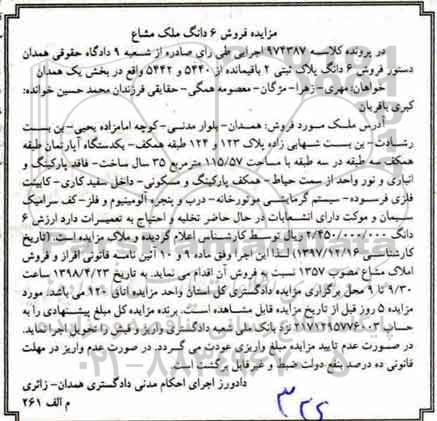 مزایده فروش ۶ دانگ ملک مشاع
در پرونده کلاسه ۹۷۴۳۸۷ اجرایی طی رای صادره از شعبه ۹ دادگاه حقوقی همدان
دستور فروش ۶ دانگ پلاک ثبتی ۲ باقیمانده از ۵۴۴۰ و ۵۴۴۲ واقع در بخش یک همدان
خواهان: مهری- زهرا- مژگان- معصومه همگی- حقایقی فرزندان محمد حسین خوانده:
کبری باقریان
آدرس ملک مورد فروش: همدان- بلوار مدنی- کوچه امامزاده یحیی- بن بست
رشادت- بن بست شهابی زاده پلاک ۱۲۳ و ۱۲۴ طبقه همکف- یکدستگاه آپارتمان طبقه
همکف سه طبقه در سه طبقه با مساحت ۱۱۵/۵۷ مترمربع ۳۵ سال ساخت- فاقد پارکینگ و
انباری و نور واحد از سمت حیاط- همکف پارکینگ و مسکونی- داخل سفید کاری- کابینت
فلزی فرسوده- سیستم گرمایشی موتورخانه- درب و پنجره آلومینیوم و فلز- کف سرامیک
سیمان و موکت دارای انشعابات در حال حاضر تخلیه و احتیاج به تعمیرات دارد ارزش ۶
دانگ ۲/۴۵۰/۰۰۰/۰۰۰ ریال توسط کارشناسی اعلام گردیده و ملاک مزایده است (تاریخ
کارشناسی ۱۳۹۷/۱۲/۱۶) لذا این اجرا وفق ماده ۹ و ۱۰ آئین نامه قانونی افراز و فروش
املاک مشاع مصوب ۱۳۵۷ نسبت به فروش آن اقدام می نماید. به تاریخ ۱۳۹۸/۴/۲۳ ساعت
۹/۳۰ تا ۹ محل برگزاری مزایده دادگستری کل استان واحد مزایده اتاق ۹۲۰ می باشد. مورد
مزایده ۵ روز قبل از تاریخ مزایده قابل مشاهده است. برنده مزایده کل مبلغ پیشنهادی را به
حساب ۲۱۷۱۲۹۵۷۷۶۰۰۳ نزد بانک ملی شعبه دادگستری واریز و فیش را تحویل اجرا نماید.
در صورت عدم تایید مزایده مبلغ واریزی عودت می گردد. در صورت عدم واریز در مهلت
قانونی ده درصد بنفع دولت ضبط و غیرقابل برگشت است.
دادورز اجرای احکام مدنی دادگستری همدان- زائری
م الف ۲۶۱
۳۲۶